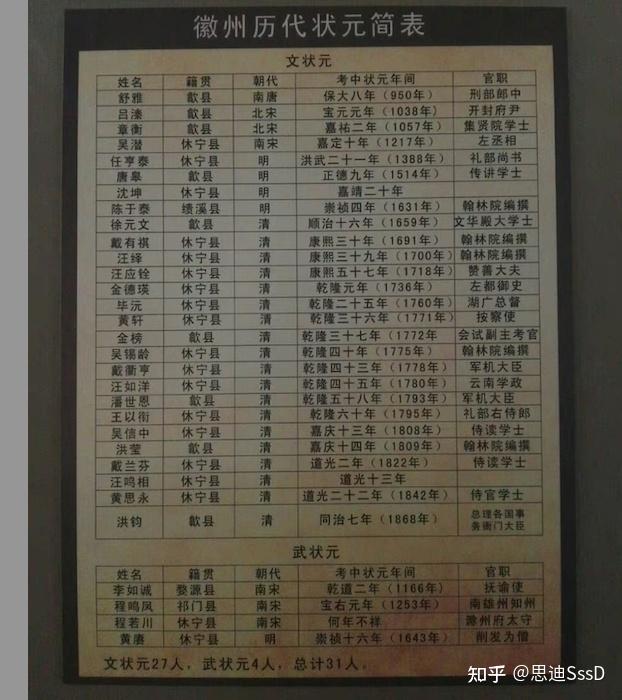 徽州历代状元简表
文状元
姓名 籍贯 朝代 考中状元年间 官职
舒雅 歙县 南唐 保大八年（950年） 刑部郎中
吕溱 歙县 北宋 宝元元年（1038年） 开封府尹
章衡 歙县 北宋 嘉祐二年（1057年） 集贤院学士
吴潜 休宁县 南宋 嘉定十年（1217年） 左丞相
任亨泰 休宁县 明 洪武二十一年（1388年） 礼部尚书
唐皋 歙县 明 正德九年（1514年） 传讲学士
沈坤 休宁县 明 嘉靖二十年
陈于泰 绩溪县 明 崇祯四年（1631年） 翰林院编撰
徐元文 歙县 清 顺治十六年（1659年） 文华殿大学士
戴有祺 休宁县 清 康熙三十年（1691年） 翰林院编撰
汪绎 休宁县 清 康熙三十九年（1700年） 翰林院编撰
汪应铨 休宁县 清 康熙五十七年（1718年） 赞善大夫
金德瑛 休宁县 清 乾隆元年（1736年） 左都御史
毕沅 休宁县 清 乾隆二十五年（1760年） 湖广总督
黄轩 休宁县 清 乾隆三十六年（1771年） 按察使
金榜 歙县 清 乾隆三十七年（1772年 会试副主考官
吴锡龄 休宁县 清 乾隆四十年（1775年） 翰林院编撰
戴衢亨 休宁县 清 乾隆四十三年（1778年） 军机大臣
汪如洋 休宁县 清 乾隆四十五年（1780年） 云南学政
潘世恩 歙县 清 乾隆五十八年（1793年） 军机大臣
王以衔 休宁县 清 乾隆六十年（1795年） 礼部右侍郎
吴信中 休宁县 清 嘉庆十三年（1808年） 侍读学士
洪莹 歙县 清 嘉庆十四年（1809年） 翰林院编撰
戴兰芬 休宁县 清 道光二年（1822年） 侍读学士
汪鸣相 休宁县 清 道光十三年
黄思永 休宁县 清 道光二十二年（1842年） 侍官学士
洪钧 歙县 清 同治七年（1868年） 总理各国事
务衙门大臣
武状元
姓名 籍贯 朝代 考中状元年间 官职
李如诚 婺源县 南宋 乾道二年（1166年） 抚谕使
程鸣凤 祁门县 南宋 宝右元年（1253年） 南雄州知州
程若川 休宁县 南宋 何年不祥 滁州府太守
黄赓 休宁县 明 崇祯十六年（1643年） 削发为僧
文状元27人，武状元4人，总计31人。
知乎 @思迪SssD